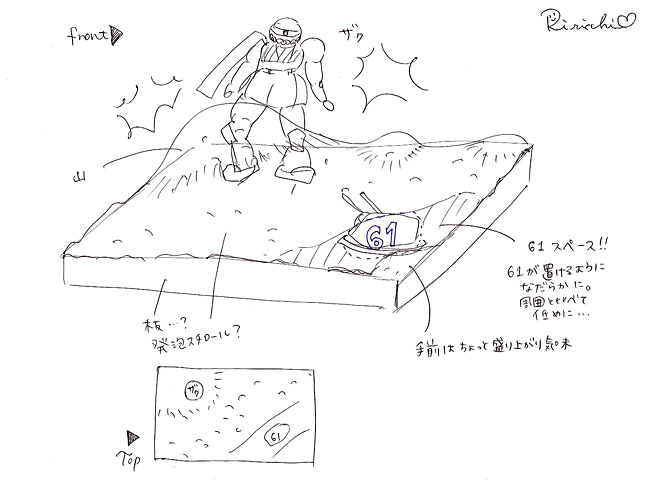 front▶
Ririchi♡
ザク
山
61
61 スペース!!
61が置けるように
なだらかに。
周囲と比べて
低めに…
手前はちょっと盛り上がり気味
板…?
発泡スチロール?
ザク
61
▶
Top